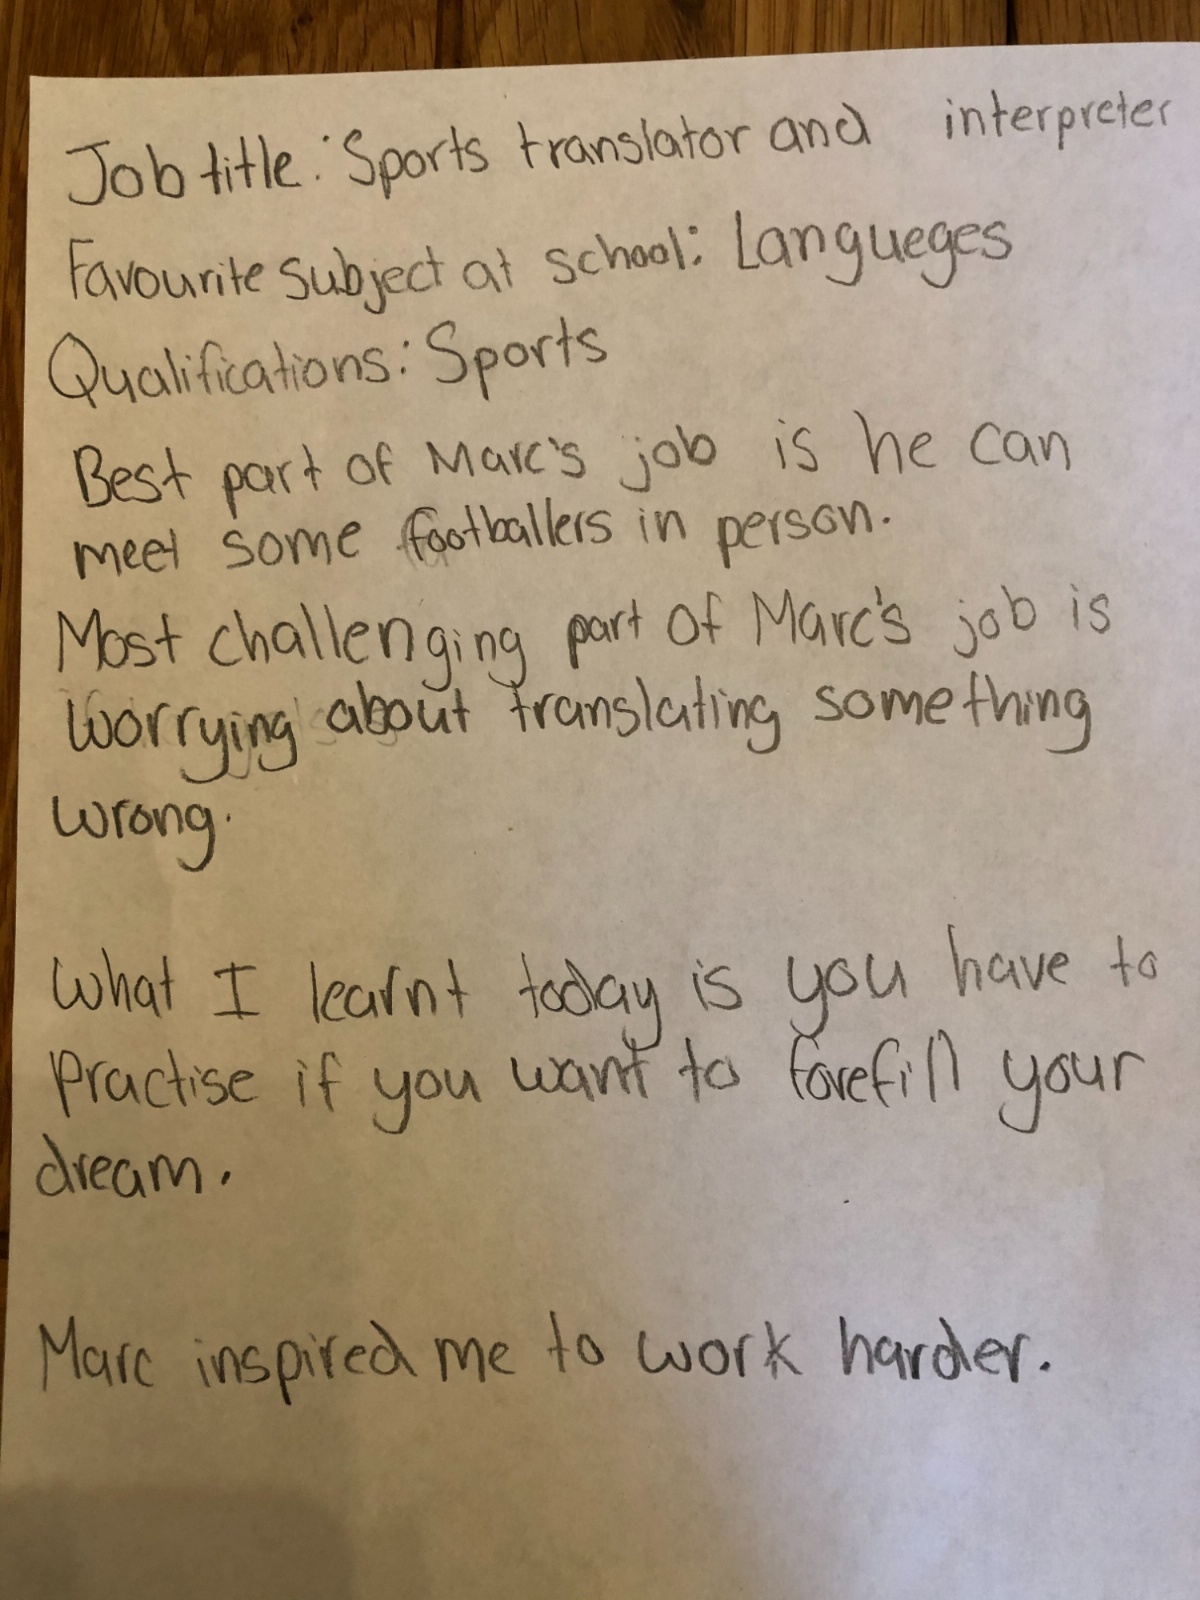 Job title: Sports translator and interpreter
Favourite subject at school: Langueges
Qualifications: Sports
Best part of Marc's job is he can
meet some footballers in person.
Most challenging part of Marc's job is
worrying about translating something
wrong.
What I learnt today is you have to
practise if you want to forefill your
dream.
Marc inspired me to work harder.